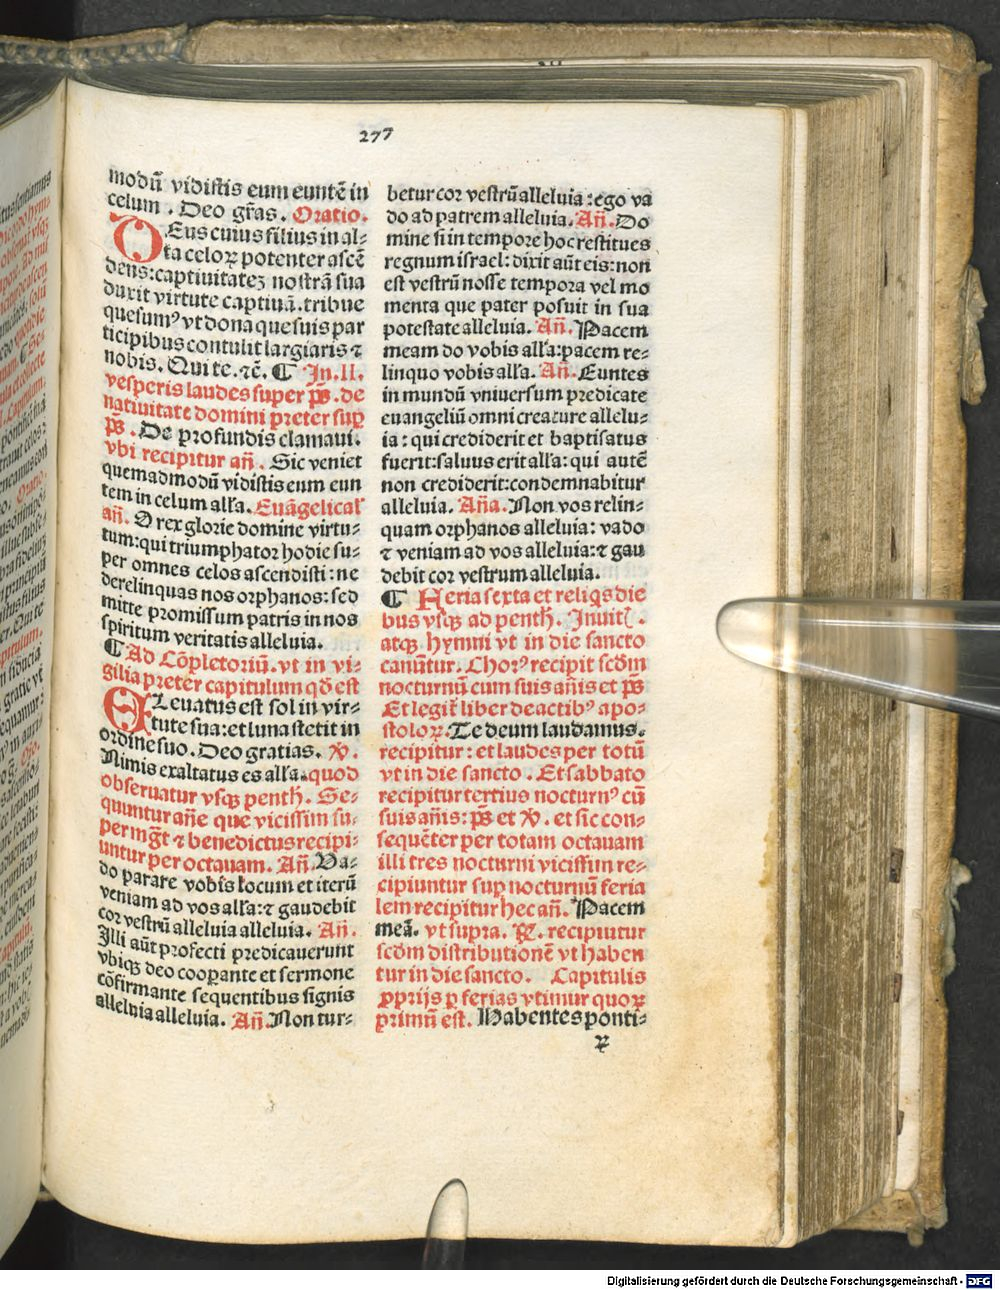 277
modū vidistis eum euntē in
celum . Deo gr̄as . Oratio.
DEus cuius filius in al⸗
ta celoꝝ potenter ascē
dens:captiuitateꝫ nostrā sua
duxit virtute captiuā.tribue
quesumꝰ vt dona que suis par
ticipibus contulit largiaris ⁊
nobis. Qui te.⁊c̄. ¶ In.II.
vesperis laudes super p̄s. de
natiuitate domini preter suꝑ
p̄s . De profundis clamaui.
vbi recipitur an̄ . Sic veniet
quemadmodū vidistis eum eun
tem in celum all'a. Euāgelical'
an̄. O rex glorie domine virtu⸗
tum:qui triumphator hodie su⸗
per omnes celos ascendisti: ne
derelinquas nos orphanos: sed
mitte promissum patris in nos
spiritum veritatis alleluia.
¶ Ad Cōpletoriū. vt in vi⸗
gilia preter capitulum qd̄ est
ELeuatus est sol in vir⸗
tute sua: et luna stetit in
ordine suo. Deo gratias. ꝟ.
Nimis exaltatus es all'a.quod
obseruatur vsqꝫ penth̄. Se⸗
quuntur an̄e que vicissim su⸗
per mḡt ⁊ benedictus recipi⸗
untur per octauam. An̄. Va⸗
do parare vobis locum et iterū
veniam ad vos all'a: ⁊ gaudebit
cor vestrū alleluia alleluia. An̄.
Illi aūt profecti predicauerunt
vbiqꝫ deo cooperante et sermone
cōfirmante sequentibus signis
alleluia alleluia. An̄. Non tur⸗
betur cor vestrū alleluia : ego va
do ad patrem alleluia. An̄. Do
mine si in tempore hoc restitues
regnum israel: dixit aūt eis: non
est vestrū nosse tempora vel mo
menta que pater posuit in sua
potestate alleluia. An̄. Pacem
meam do vobis all'a: pacem re⸗
linquo vobis all'a. An̄. Euntes
in mundū vniuersum predicate
euangeliū omni creature allelu⸗
ia : qui crediderit et baptisatus
fuerit: saluus erit all'a: qui autē
non crediderit: condemnabitur
alleluia. An̄a. Non vos relin⸗
quam orphanos alleluia: vado
⁊ veniam ad vos alleluia: ⁊ gau
debit cor vestrum alleluia.
¶ Feria sexta et reliq̄s die
bus vsqꝫ ad penth̄. Inuit̄.
atqꝫ hymni vt in die sancto
canūtur. Chorꝰ recipit scd̄m
nocturnū cum suis an̄is et p̄s
Et legit̄ liber de actibꝰ apo⸗
stoloꝝ. Te deum laudamus.
recipitur : et laudes per totū
vt in die sancto . Et sabbato
recipitur tertius nocturnꝰ cū
suis an̄is: p̄s et ꝟ. et sic con⸗
sequēter per totam octauam
illi tres nocturni vicissim re⸗
cipiuntur suꝑ nocturnū feria
lem recipitur hec an̄. Pacem
meā. vt supra. ꝶ. recipiuntur
scd̄m distributionē vt haben
tur in die sancto. Capitulis
ꝓprijs ꝑ ferias vtimur quoꝝ
primū est. Habentes ponti⸗
ꝝ
Digitalisierung gefördert durch die Deutsche Forschungsgemeinschaft - DFG